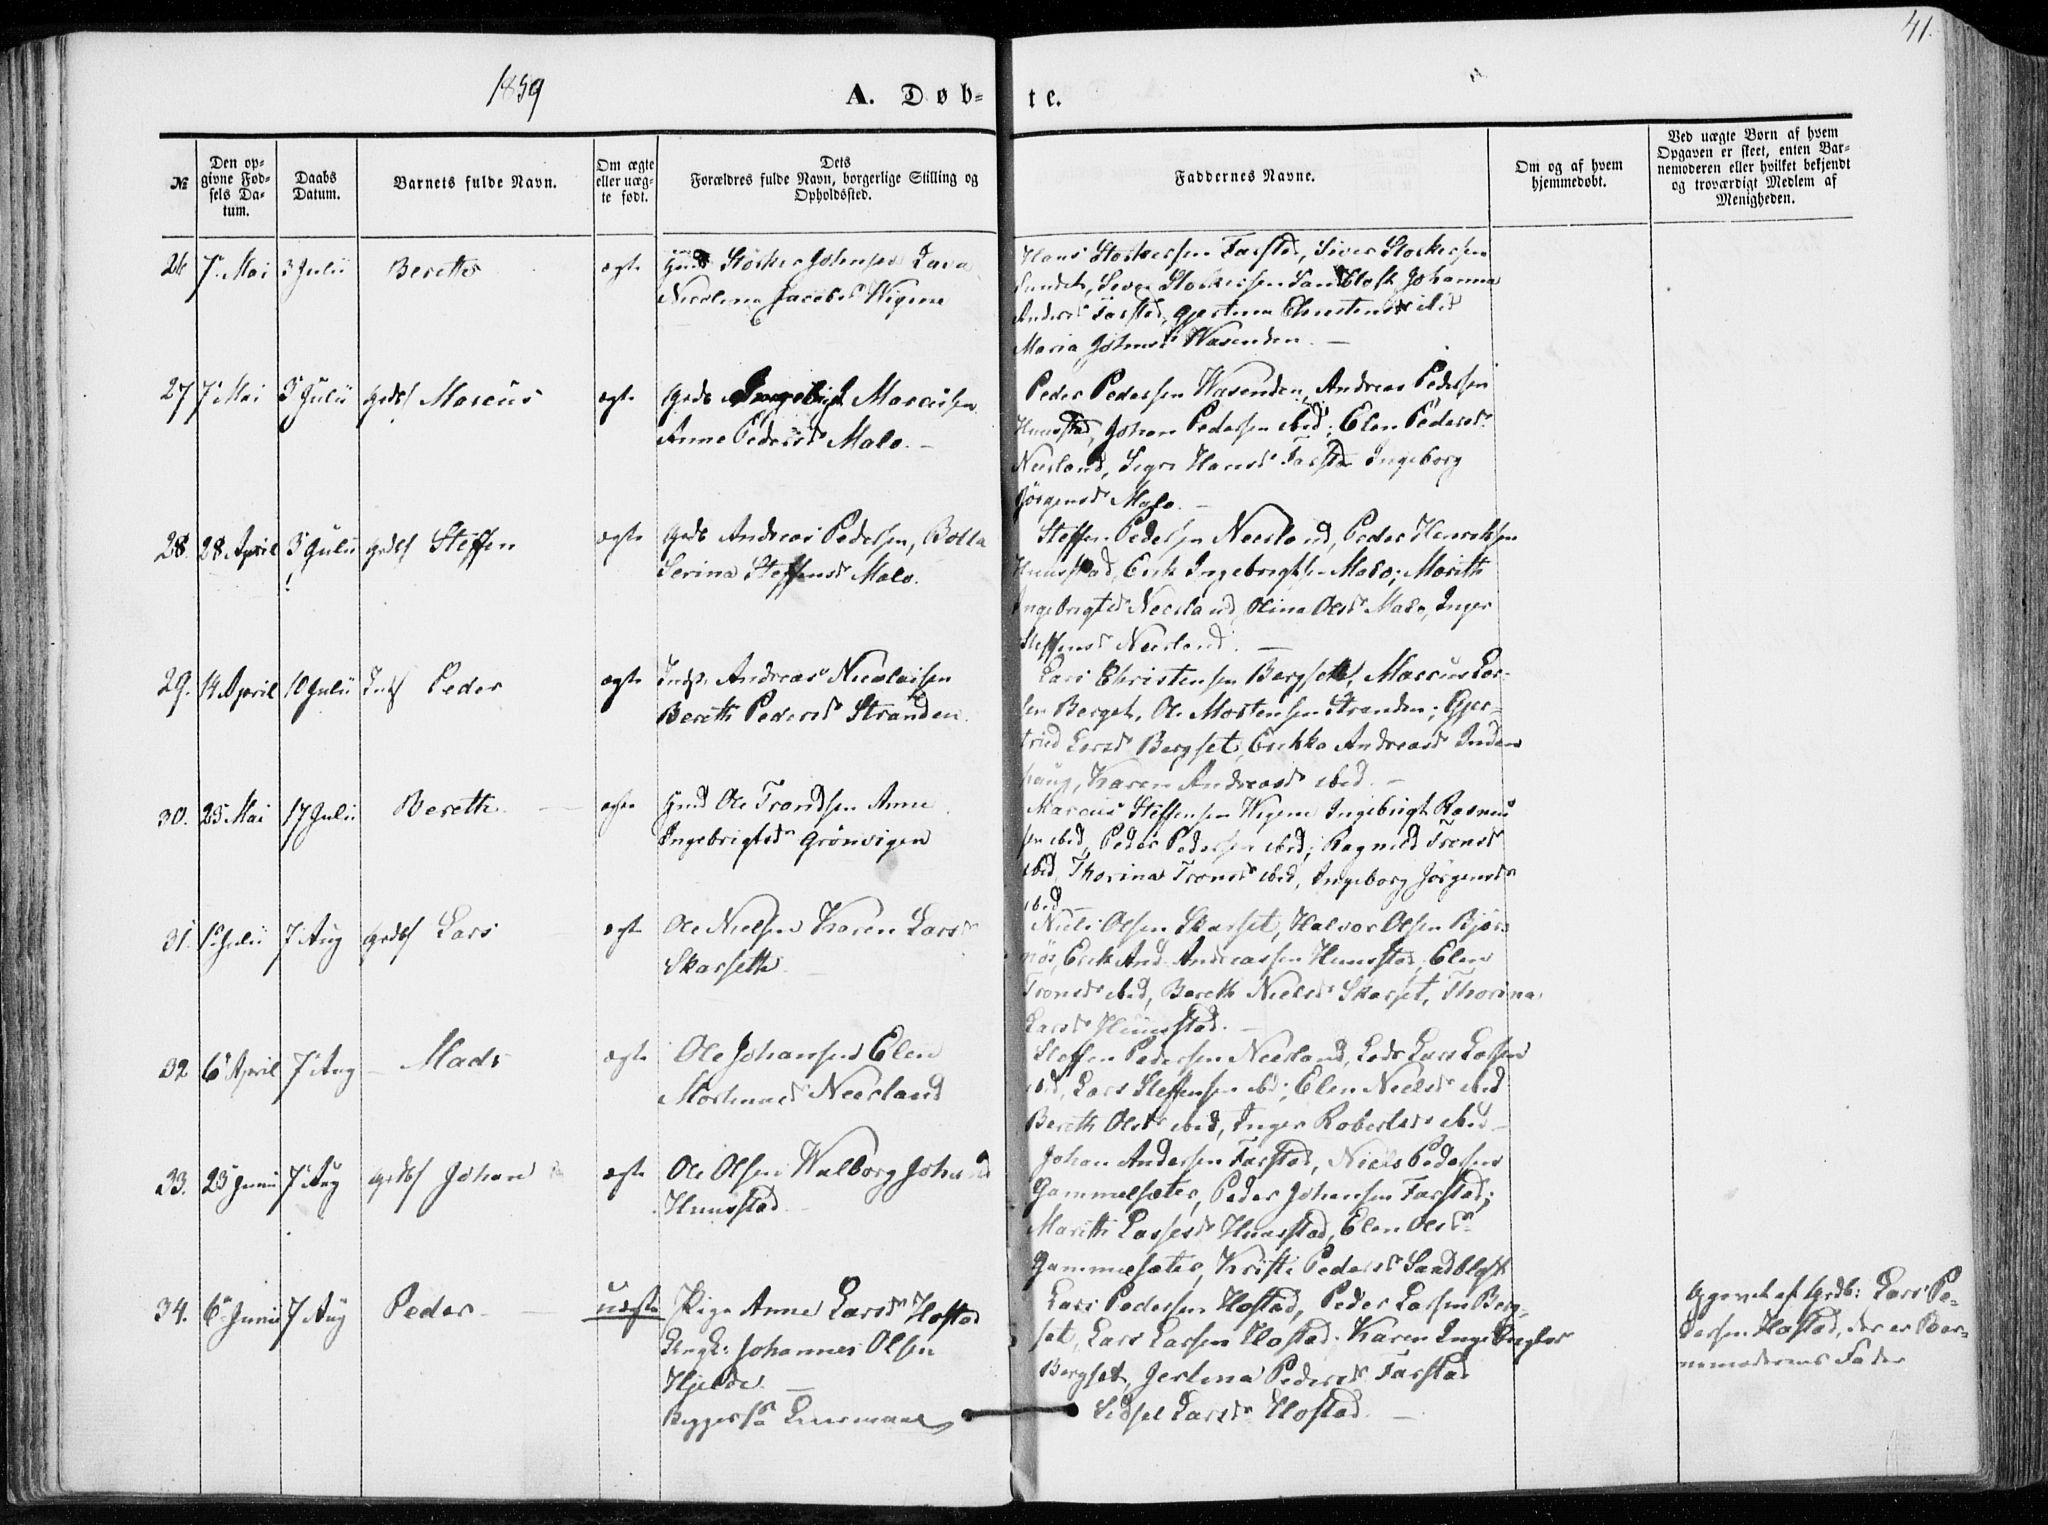 41.
1859
A. Døb-
te.
№
Den op-
givne Fød-
sels Da-
tum.
Daabs
Datum.
Barnets fulde Navn.
Om ægte
eller uæg-
te født.
Dets
Forældres fulde Navn, borgerlige Stilling og
Opholdssted.
Faddernes Navne.
Om og af hvem
hjemmedøbt.
Ved uægte Børn af hvem
Opgaven er skeet, enten Bar-
nemoderen eller hvilket bekjendt
og troværdigt Medlem af
Menigheden.
26 7 Mai 3 Julii Berethe ægte Størker Johnsen
Nicolina Jacobsd Wigene
Hans Storkersen Farstad, Siver Storkersen
Sandblost Johanna
Andersd Farstad, Christensd ibid
Maria Johnsd Wasenden. —
27 7 Mai 3 Julii Marcus ægte Grdb Ingebrigt Marcusen
Anne Pedersd Malo. —
Peder Pedersen Wasenden, Andreas Pedersen
Hunstad, Johan Pedersen ibid; Elen Pedersd
Neerland, Sigri Hansd Farstad Ingeborg
Jørgensd Malo. —
28. 28 April 3 Julii Steffen ægte Grdb Andreas Pedersen,
Serina Steffensd Malo.
Steffen Pedersen Neerland, Peder Henriksen
Hunstad, Erik Ingebrigtsen Malo; Marith
Ingebrigtsd Neerland, Olina Olsd Malo, Inger
Steffensd Neerland. —
29. 14 April 10 Julii Peder ægte Indst. Andreas Nicolaisen
Bereth Pedersd Stranden.
Lars Christensen Bergset, Marcus Lar-
sen Berget, Ole Mortensen Stranden; Gjer-
trud Larsd Bergset, Andreasd Inder-
houg, Karen Andreasd ibid. —
30. 25 Mai 17 Julii Bereth ægte Ole Trondsen Anne
Ingebrigtsd Grønvigen
Marcus Steffensen Wigene Ingebrigt Rasmus
sen ibid, Peder Pedersen ibid; Ragnild Tronsd
ibid, Thorina Tronsd ibid, Ingeborg Jørgensd
ibid
31. 1 Julii 7 Aug Lars ægte Ole Nielsen Karen Larsd
Skarseth
Niels Olsen Skarset, Halvor Olsen Bjør-
nør, Erik And. Andreassen Hunstad; Elen
Tronsd ibid, Bereth Nielsd Skarset, Thorina
Larsd Hunstad. —
32 6 April 7 Aug — Mads ægte Ole Johansen Elen
Mortensd Neerland
Steffen Pedersen Neerland, Lars Larsen
ibid, Lars Steffensen ibd; Elen Nielsd ibid
Bereth Olsd ibid, Inger Robertsd ibid —
33. 25 Junii 7 Aug Johan ægte Ole Olsen Walborg Johansd
Hunstad. —
Johan Andersen Farstad, Niels Pedersen
Gammelsæter, Peder Johansen Farstad;
Marith Lassesd Hunstad, Elen Olsd
Gammelsæter, Kristi Pedersd Sandblost
34. 6 Junii 7 Aug Peder — uægte Pige Anne Larsd Hostad
Ungk: Johannes Olsen
Hjelde. —
Begges 1ste Leiermaal
Lars Pedersen Hostad, Peder Larsen Berg-
set, Lars Larsen Hostad, Karen Ingebrigtsd
Bergset, Pedersd Farstad
Sidsel Larsd Hostad. —
Opgivet af Grdb: Lars Pe-
dersen Hostad, der er Bar-
nemoderens Fader